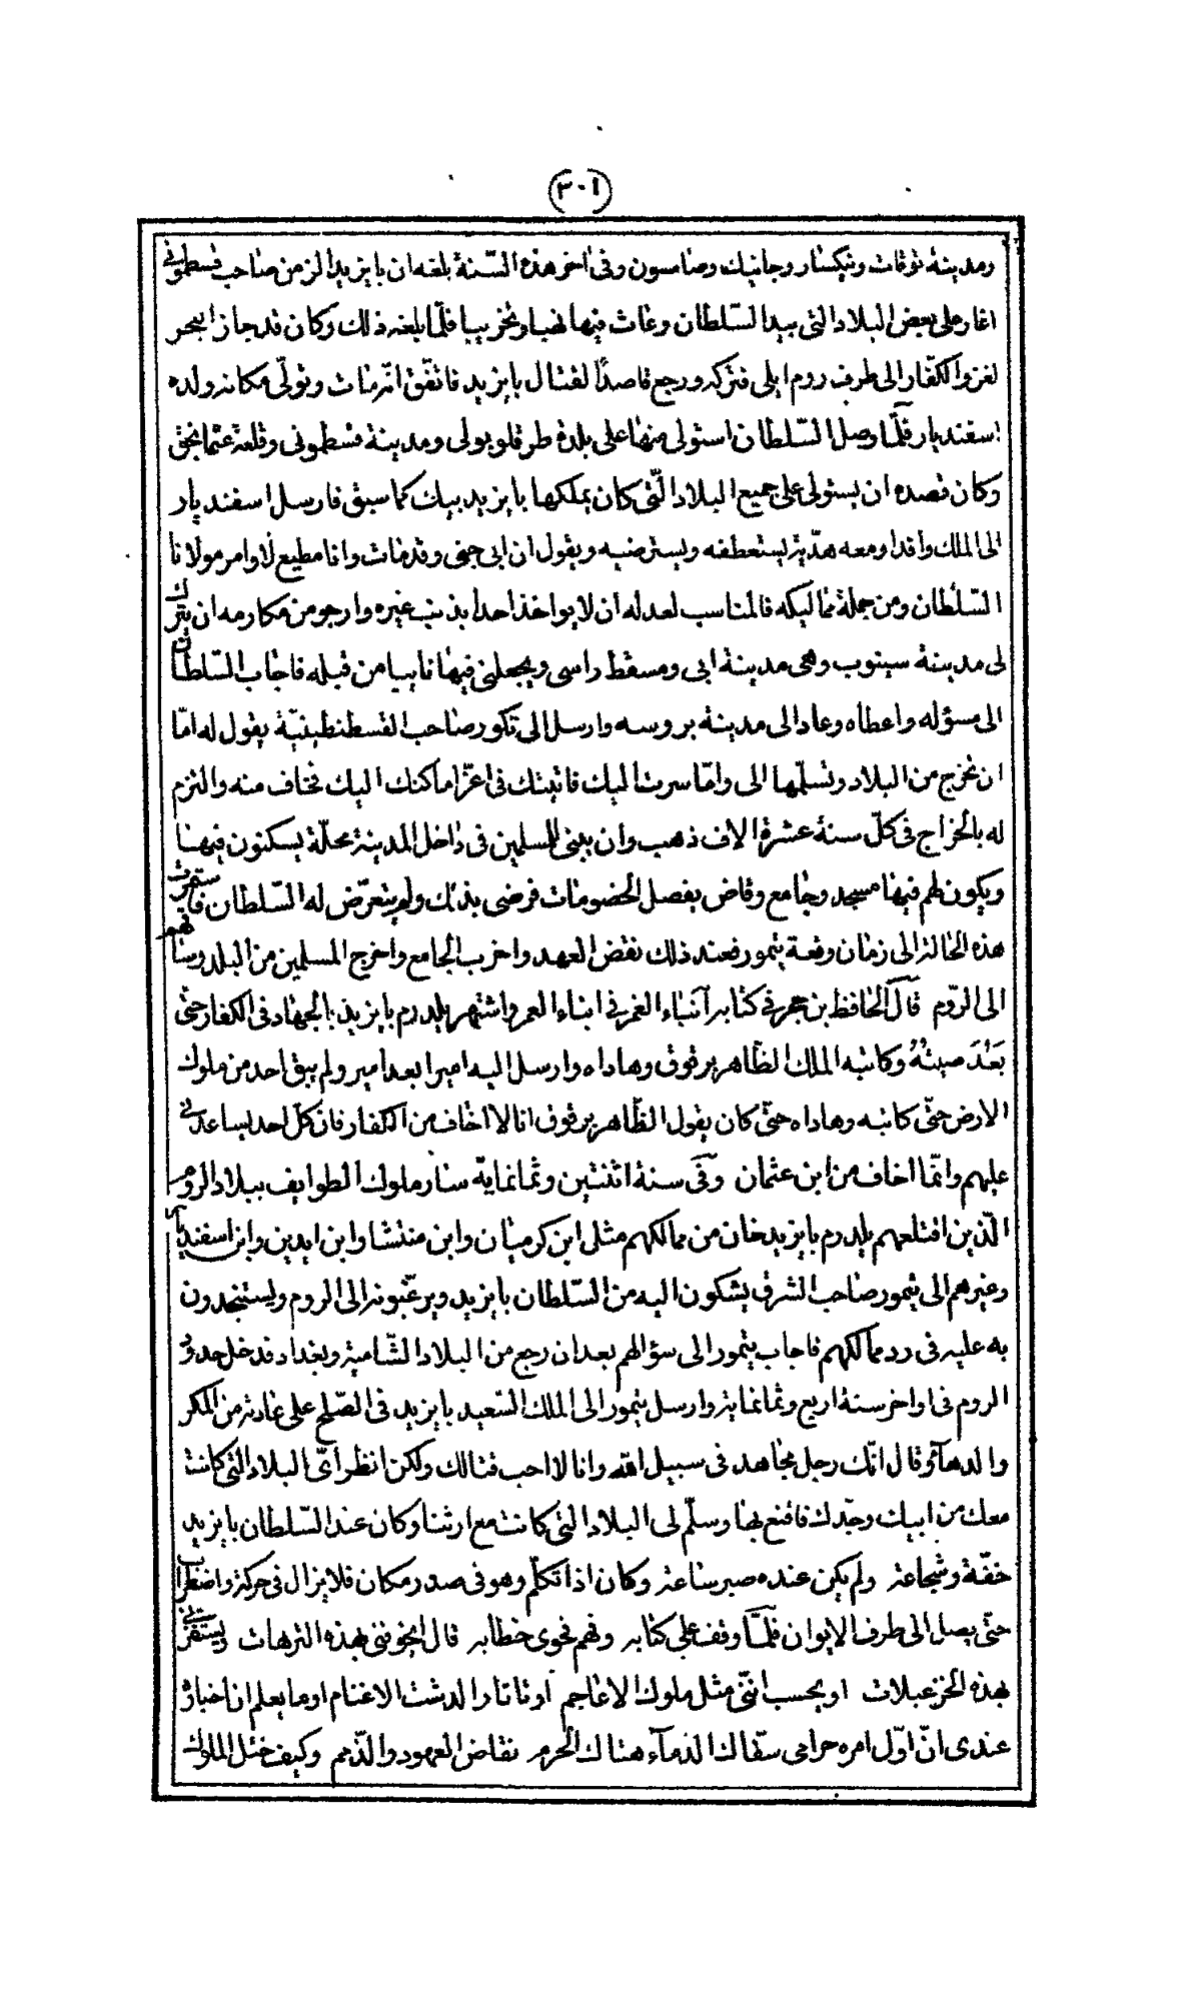 (٣٠١)
ومدينة توقات ونيكسار وجانيك وصامسون وفى اخر هذه السّنة بلغه ان بايزيد الزمن صاحب قسطمونى
اغار على بعض البلاد التى بيد السّلطان وعاث فيها نهبا وتخريبا فلمّا بلغه ذلك وكان قد جاز البحر
لغزو الكفّار الى طرف روم ايلى فتركه ورجع قاصدًا لقتال بايزيد فاتفّق انّه مات وتولّى مكانه ولده
اسفنديار فلمّا وصل السّلطان استولى منها على بلدة طرقلو بولى ومدينة قسطمونى وقلعة عثمانجق
وكان قصده ان يستولى على جميع البلاد الّتى كان يملكها بايزيد بيك كما سبق فارسل اسفنديار
الى الملك وافدا ومعه هدّية يستعطفه ويسترضيه ويقول ان ابى جنى وقد مات وانا مطيع لاوامر مولانا
السّلطان ومن جملة مماليكه فالمناسب لعدله ان لا يواخذ احدا بذنب غيره وارجو من مكارمه ان يترك
لى مدينة سينوب وهى مدينة ابى ومسقط راسى ويجعلنى فيها نايبا من قبله فاجاب السّلطان
الى مسؤله واعطاه وعاد الى مدينة بروسه وارسل الى تكور صاحب القسطنطينيّة يقول له امّا
ان تخرج من البلاد وتسلّمها الى وامّا سرت اليك فاتيتك فى اعزّ اماكنك اليك فخاف منه والتزم
له بالخراج فى كلّ سنة عشرة الاف ذهب وان يبنى للمسلمين فى داخل المدينة محلّة يسكنون فيها
ويكون لهم فيها مسجد وجامع وقاض يفصل الخصومات فرضى بذلك ولم يتعرّض له السّلطان فاستمرت
هذه الحالة الى زمان وقعة تيمور فعند ذلك نقض العهد واخرب الجامع واخرج المسلمين من البلد وساقهم
الى الرّوم قال الحافظ بن حجر فى كتابه آنباء الغمر فى ابناء العمر واشتهر يلدرم بايزيد بالجهاد فى الكفار حتى
بَعُدَ صيتُهُ وكاتبه الملك الظاهر برقوق وهاداه وارسل اليه اميرا بعد امير ولم يبق احد من ملوك
الارض حتّى كاتبه وهاداه حتّى كان يقول الظّاهر برقوق انا لا اخاف من الكفار فان كلّ احد يساعدنى
عليهم وانّما اخاف من ابن عثمان وفى سنة اثنتين وثمانماية سار ملوك الطوايف ببلاد الروم
الّذين اقتلعهم يلدرم بايزيد خان من ممالكهم مثل ابن كرميان وابن منتشا وابن ايدين وابن اسفنديار
وغيرهم الى تيمور صاحب الشرق يشكون اليه من السّلطان بايزيد ويرغّبونه الى الروم ويستنجدون
به عليه فى رد ممالكهم فاجاب تيمور الى سؤالهم بعد ان رجع من البلاد الشّامية وبغداد فدخل حدود
الروم فى اواخر سنة اربع وثمانماية وارسل تيمور الى الملك السّعيد بايزيد فى الصّلح على عادته من المكر
والدهآء وقال انّك رجل مجاهد فى سبيل الله وانا لا احب قتالك ولكن انظر اىّ البلاد التى كانت
معك من ابيك وجدّك فاقنع بها وسلّم لى البلاد التى كانت مع ارثنا وكان عند السّلطان بايزيد
خفّة وشجاعة ولم يكن عنده صبر ساعة وكان اذا تكلّم وهو فى صدر مكان فلا يزال فى حركة واضطراب
حتّى يصل الى طرف الايوان فلمّا وقف على كتابه وفهم فحوى خطابه قال ايخوفنى بهذه الترهات ويستفزنى
بهذه الخزعبلات او يحسب انّنى مثل ملوك الاعاجم او تاتار الدشت الاغنام اوما يعلم ان اخباره
عندى انّ اوّل امره حرامى سفّاك الدمآء هتاك الحرم نقاض العهود والذّمم وكيف ختل الملوك